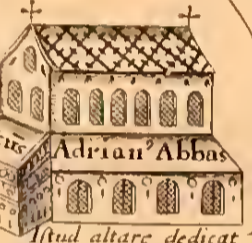 Adrian⁹ Abbas
Istud altare dedicat